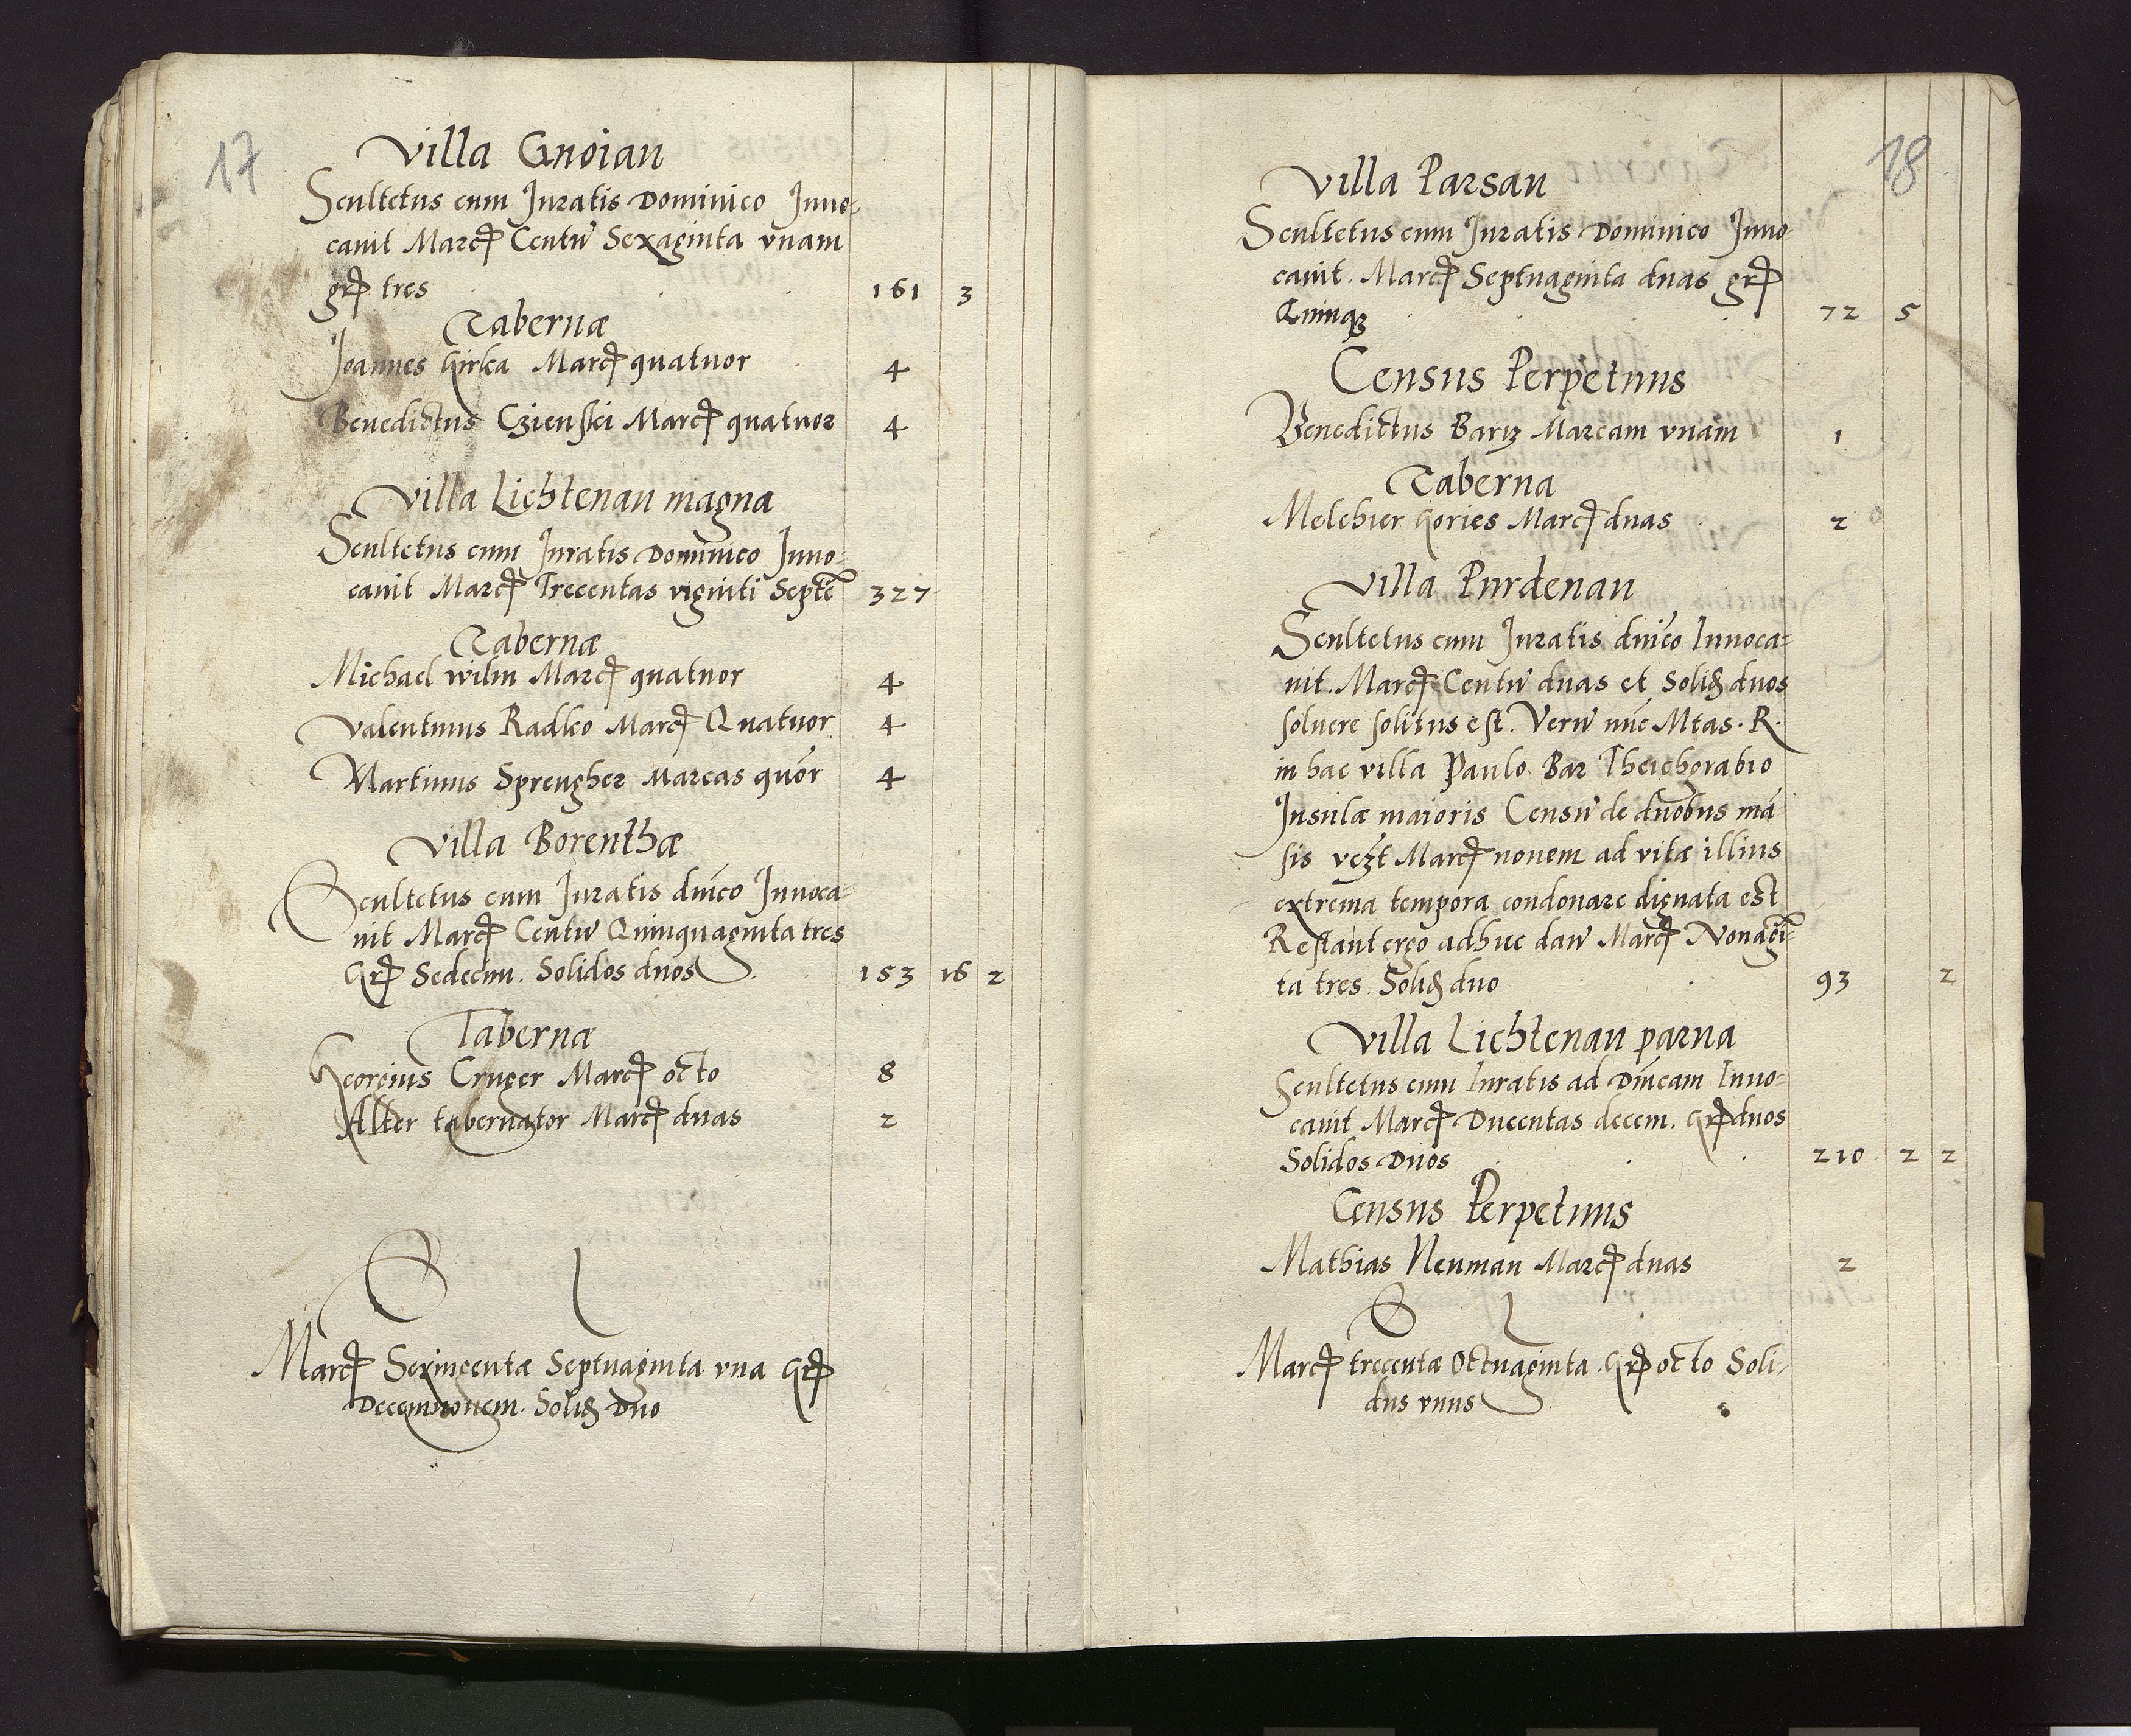 17
Villa Gnoian
Scultetus cum Juratis Dominico Juuo-
cauit Marcȝ Centū Sexaginta vnam
grȝ tres 161 3
Tabernæ
Joannes Girka Marcȝ quatuor 4
Benedictus Czienski Marcȝ quatuor 4
Villa Lichtenau magna
Scultetus cum Juratis Dominico Inuo-
cauit Marcȝ Trecentas viginti Septē 327
Tabernæ
Michael Wilm Marcȝ quatuor 4
Valentinus Radko Marcȝ Quatuor 4
Martinus Sprengher Marcas quōr 4
Villa Borenthæ
Scultetus cum Juratis dnīco Inuoca-
uit Marcȝ Centū Quinquaginta tres
Grȝ Sedecim. Solidos duos 153 16 2
Tabernæ
Georgius Cruger Marcȝ octo 8
Alter tabernator Marcȝ duas 2
S l
Marcȝ Sexincentæ Septuaginta vna Grȝ
Decemnouem. Solidȝ Duo
18
Villa Parsau
Scultetus cum Juratis Dominico Inuo
cauit. Marcȝ Septuaginta duas grȝ
Quinqȝ 72 5
Census Perpetuus
Benedictus Barȝ Marcam vnam 1
Taberna
Melchier Gories Marcȝ duas 2
Villa Purdenau
Scultetus cum Juratis dnīco Inuoca-
uit. Marcȝ Centū duas et Solidȝ duos
soluere solitus est. Verū nūc Mtas. R.
in hac villa Paulo Bar Theichgrabio
Insulæ maioris Censū de duobus mā
sis vczt Marcȝ nouem ad vitæ illius
extrema tempora condonare dignata est
Restant ergo adhuc danī Marcȝ Nonagī-
ta tres Solidȝ duo 93 2
Villa Lichtenau parua
Scultetus cum Iuratis ad Dnīcam Inuo-
cauit Marcȝ Ducentas decem. Grȝ duos
Solidos Duos 210 2 2
Census Perpetuus
Mathias Neuman Marcȝ duas 2
S l
Marcȝ trecentæ Octuaginta. Grȝ octo Soli-
dus vnus